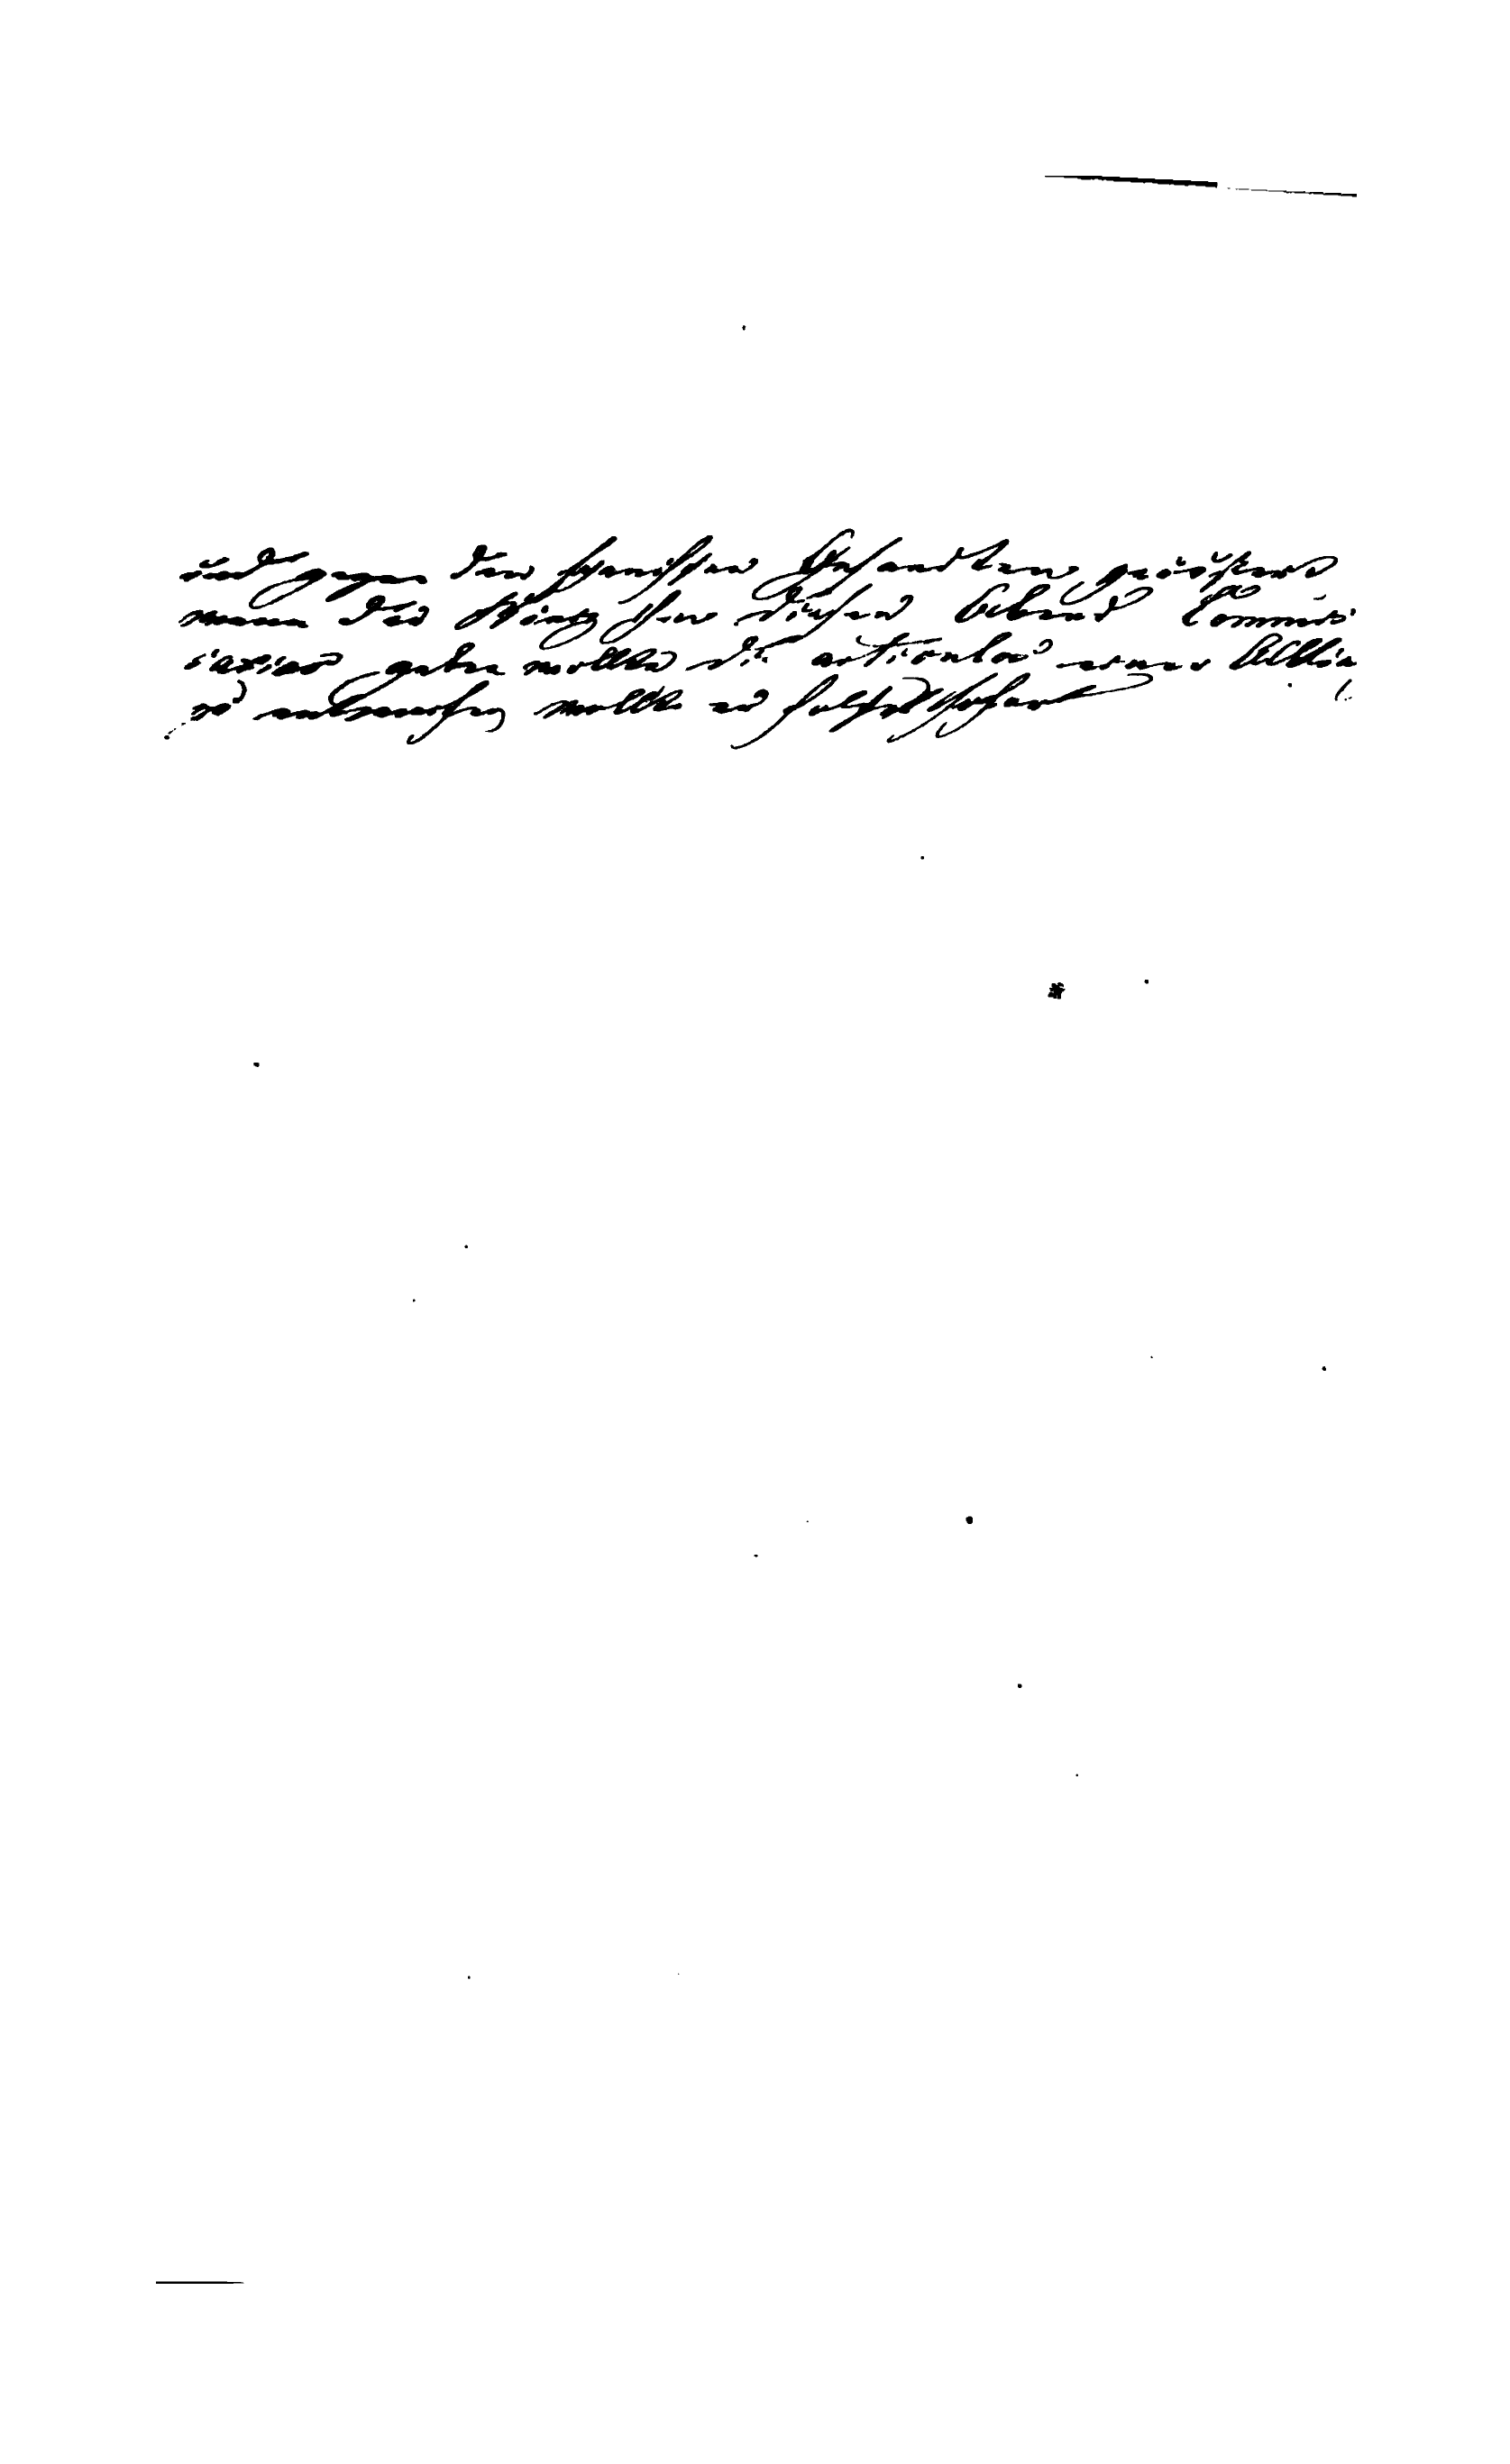 und gegen den spanischen Gesandten geäußert
wenn der König ihm diesen Abend Commis
sarien geben wollte die articulos einer Allian
ce entwerfen wollte er